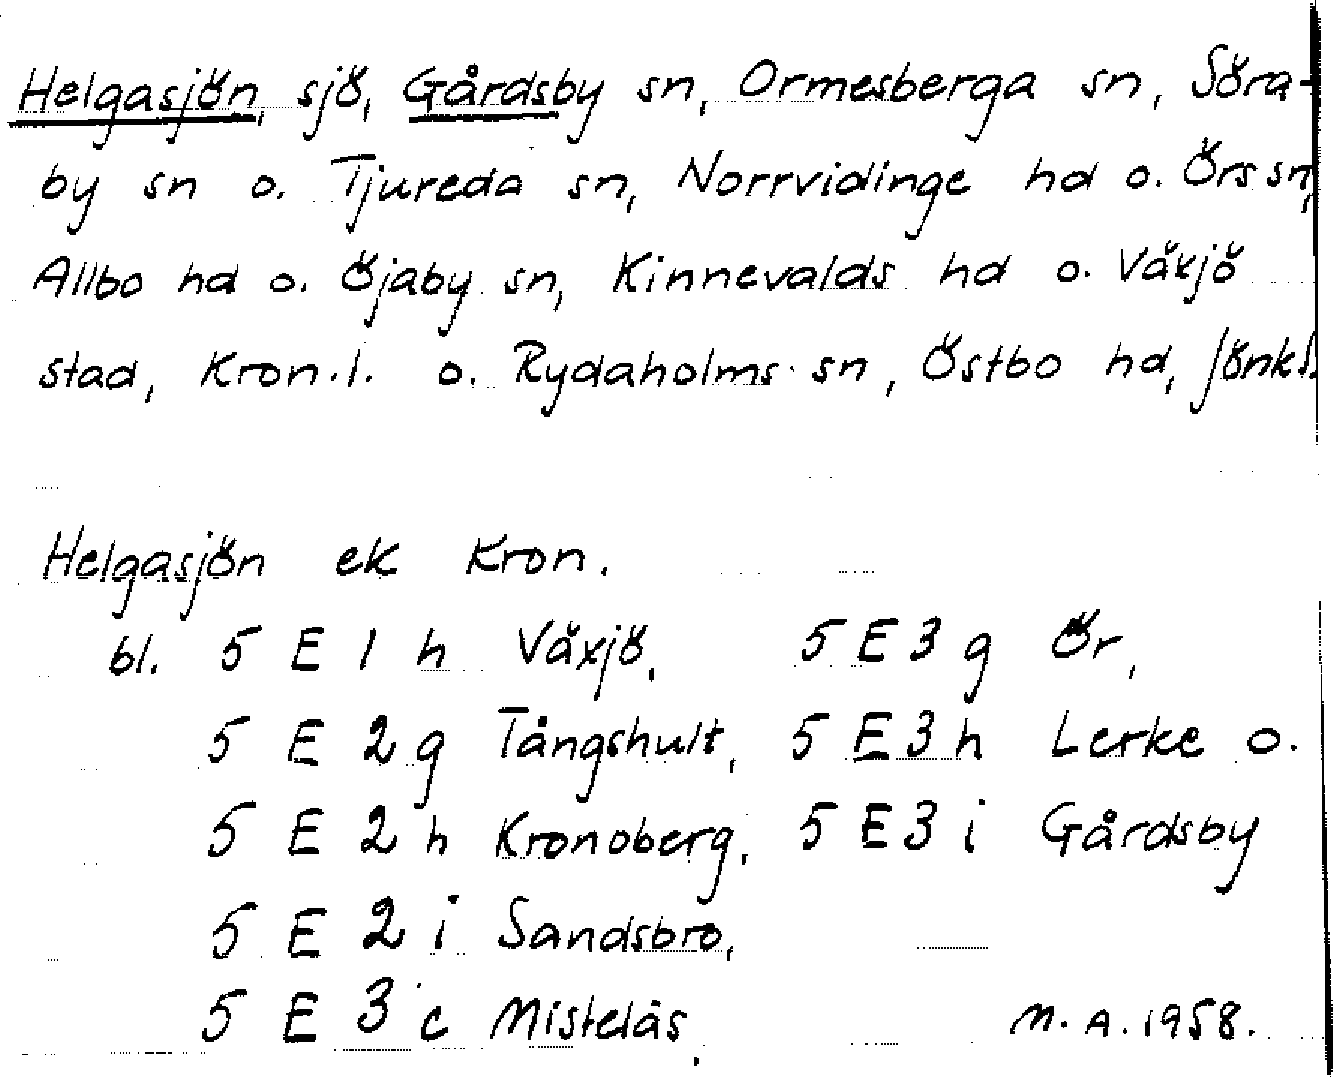 Helgasjön, sjö, Gårdsby sn, Ormesberga sn, Söra-
by sn o. Tjureda sn, Norrvidinge hd o. Örs sn,
Allbo hd o. Öjaby sn, Kinnevalds hd o. Växjö
stad, Kron.l. o. Rydaholms sn, Östbo hd, Jönk.l.
Helgasjön ek Kron.
bl. 5 E 1 h Växjö, 5 E 3 g Ör,
5 E 2 g Tångshult, 5 E 3 h Lerke o.
5 E 2 h Kronoberg, 5 E 3 i Gårdsby
5 E 2 i Sandsbro,
5 E 3 c Mistelås, M.A. 1958.